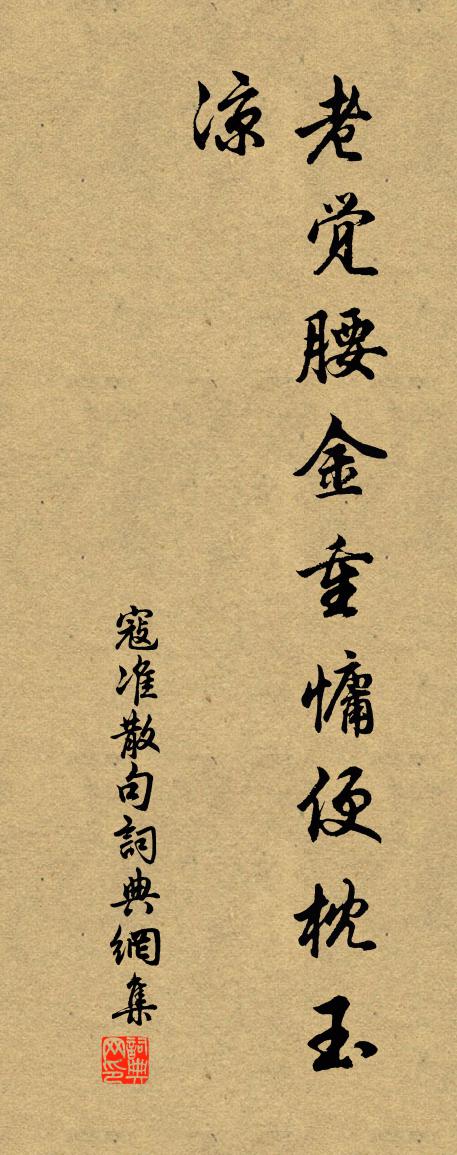 老觉腰金重慵便枕玉
凉
寇准散句詞典網集
詞典网印